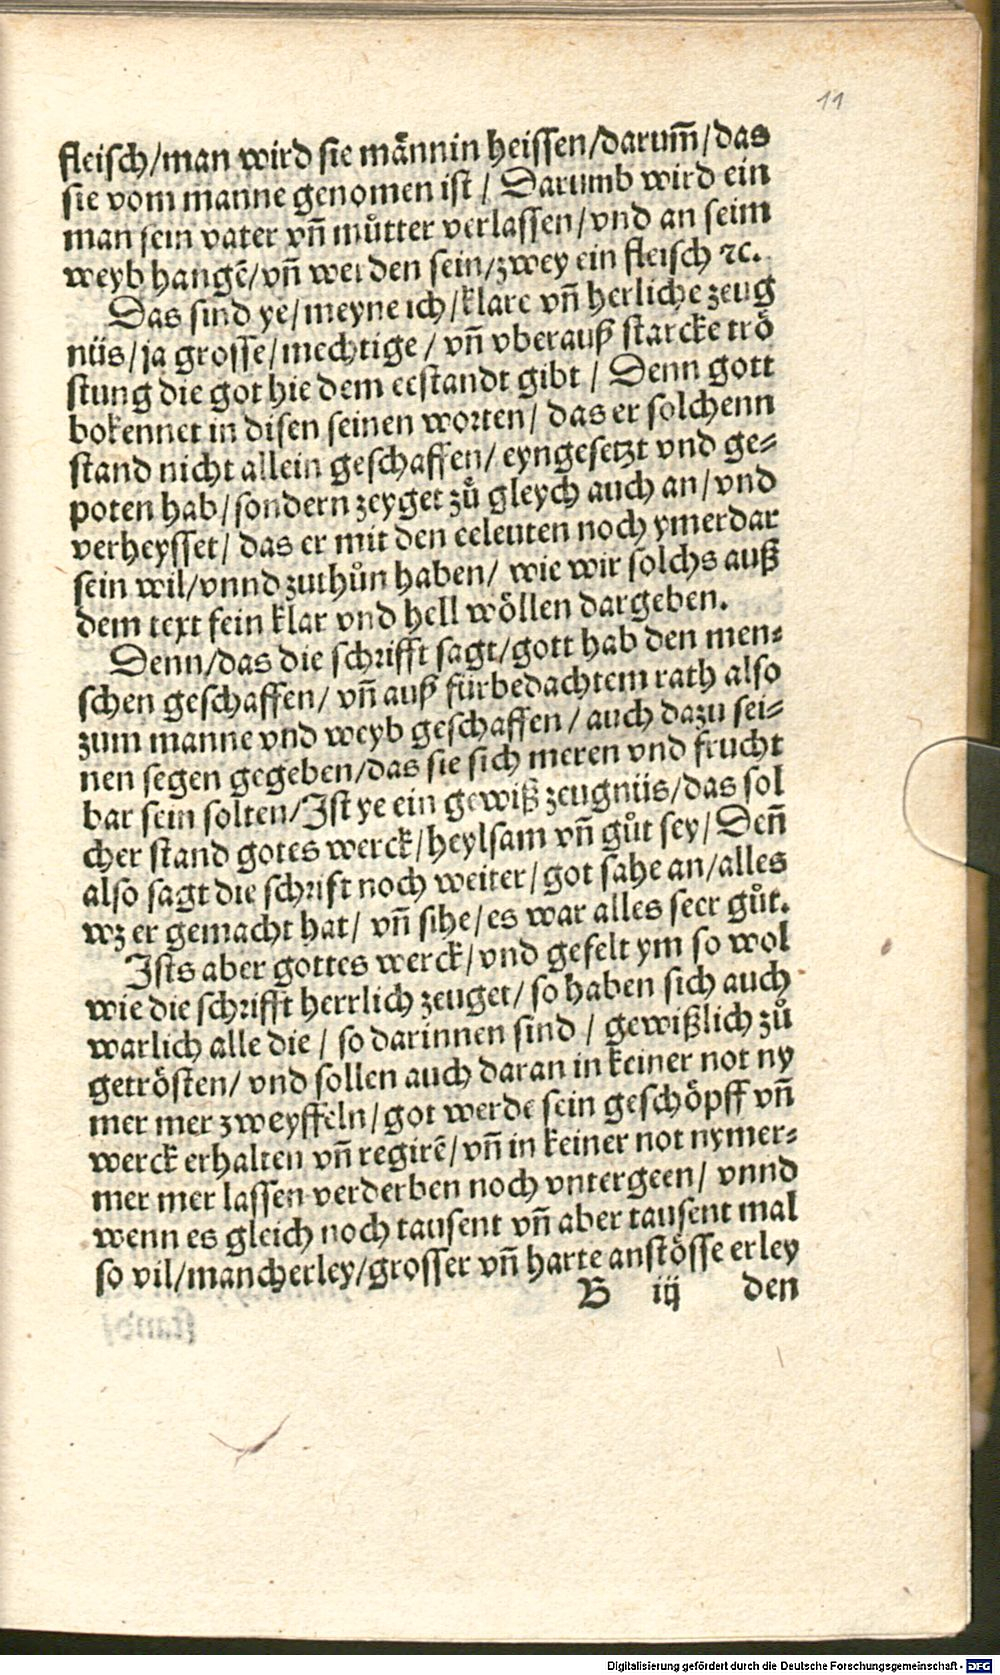 11
fleisch/man wird sie männin heissen/darum̄/das
sie vom manne genomen ist/ Darumb wird ein
man sein vater vn̄ můtter verlassen/vnd an seim
weyb hangē/vn̄ werden sein/zwey ein fleisch ⁊c.
Das sind ye/meyne ich/klare vn̄ herliche zeug
nüs/ja grosse/mechtige/ vn̄ vberauß starcke trö
stung die got hie dem eestandt gibt/ Denn gott
bokennet in disen seinen worten/ das er solchenn
stand nicht allein geschaffen/ eyngesetzt vnd ge⸗
poten hab/sondern zeyget zů gleych auch an/vnd
verheysset/ das er mit den eeleuten noch ymerdar
sein wil/vnnd zuthůn haben/ wie wir solchs auß
dem text fein klar vnd hell wöllen dargeben.
Denn/das die schrifft sagt/gott hab den men⸗
schen geschaffen/ vn̄ auß fürbedachtem rath also
zum manne vnd weyb geschaffen/ auch dazu sei⸗
nen segen gegeben/das sie sich meren vnd frucht
bar sein solten/Ist ye ein gewiß zeugnüs/das sol
cher stand gotes werck/heylsam vn̄ gůt sey/ Den̄
also sagt die schrift noch weiter/got sahe an/alles
wz er gemacht hat/ vn̄ sihe/es war alles seer gůt.
Ists aber gottes werck/vnd gefelt ym so wol
wie die schrifft herrlich zeuget/ so haben sich auch
warlich alle die/ so darinnen sind/ gewißlich zů
getrösten/ vnd sollen auch daran in keiner not ny
mer mer zweyffeln/got werde sein geschöpff vn̄
werck erhalten vn̄ regirē/vn̄ in keiner not nymer⸗
mer mer lassen verderben noch vntergeen/ vnnd
wenn es gleich noch tausent vn̄ aber tausent mal
so vil/mancherley/grosser vn̄ harte anstösse erley
B iij den
Digitalisierung gefördert durch die Deutsche Forschungsgemeinschaft - DFG